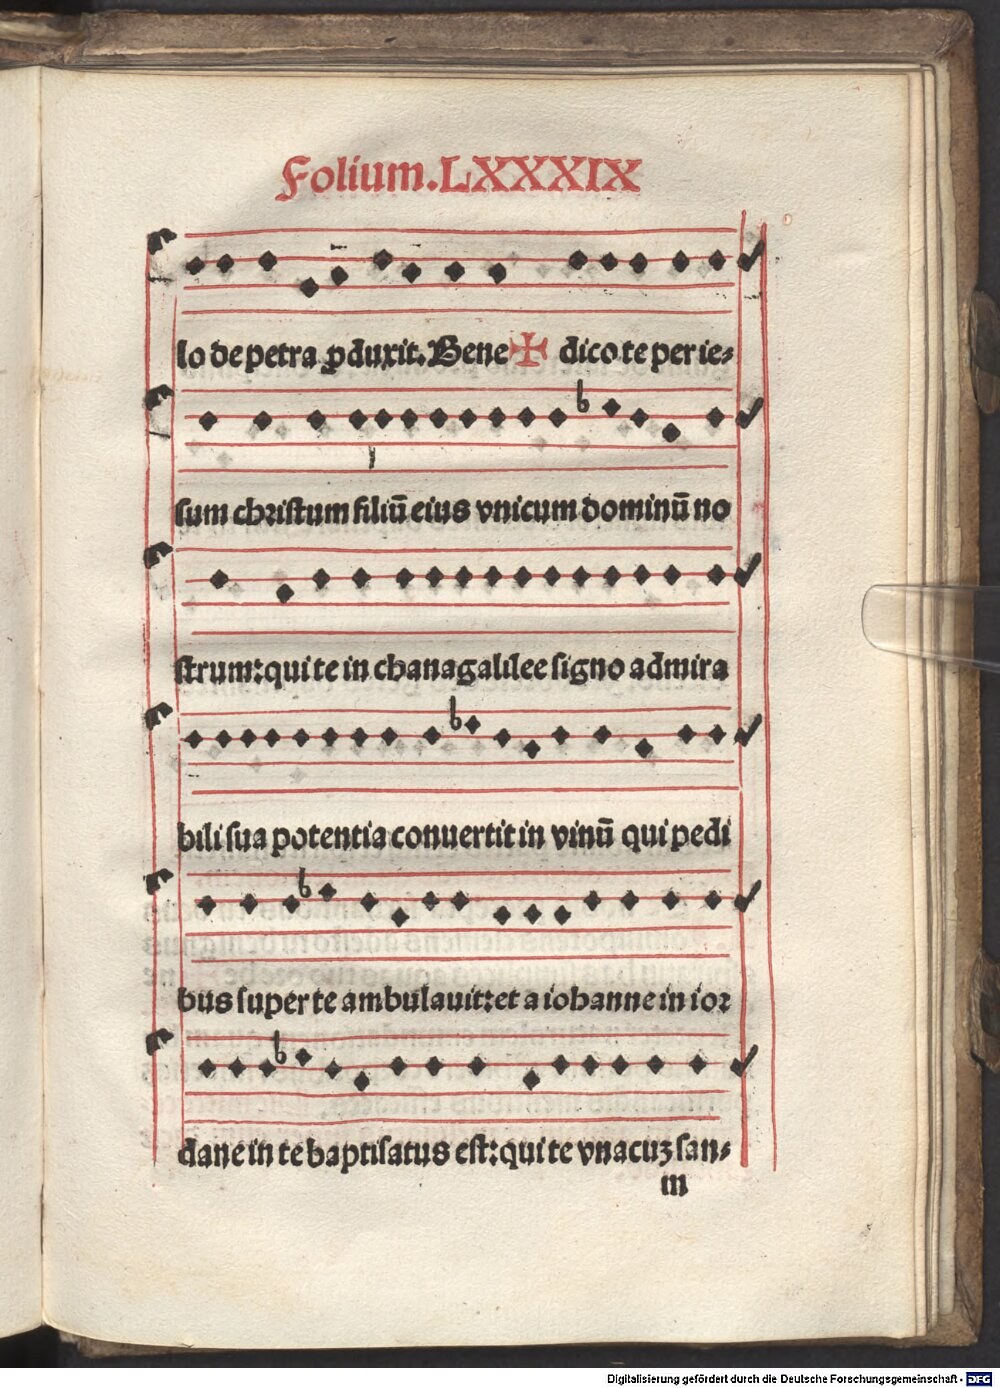 Folium.LXXXIX
lo de petra ꝓduxit. Bene✠ dico te per ie⸗
sum christum filiū eius vnicum dominū no
strum: qui te in chanagalilee signo admira
bili sua potentia conuertit in vinū qui pedi
bus super te ambulauit: et a iohanne in ior
dane in te baptisatus est: qui te vnacuz san⸗
m
Digitalisierung gefördert durch die Deutsche Forschungsgemeinschaft - DFG